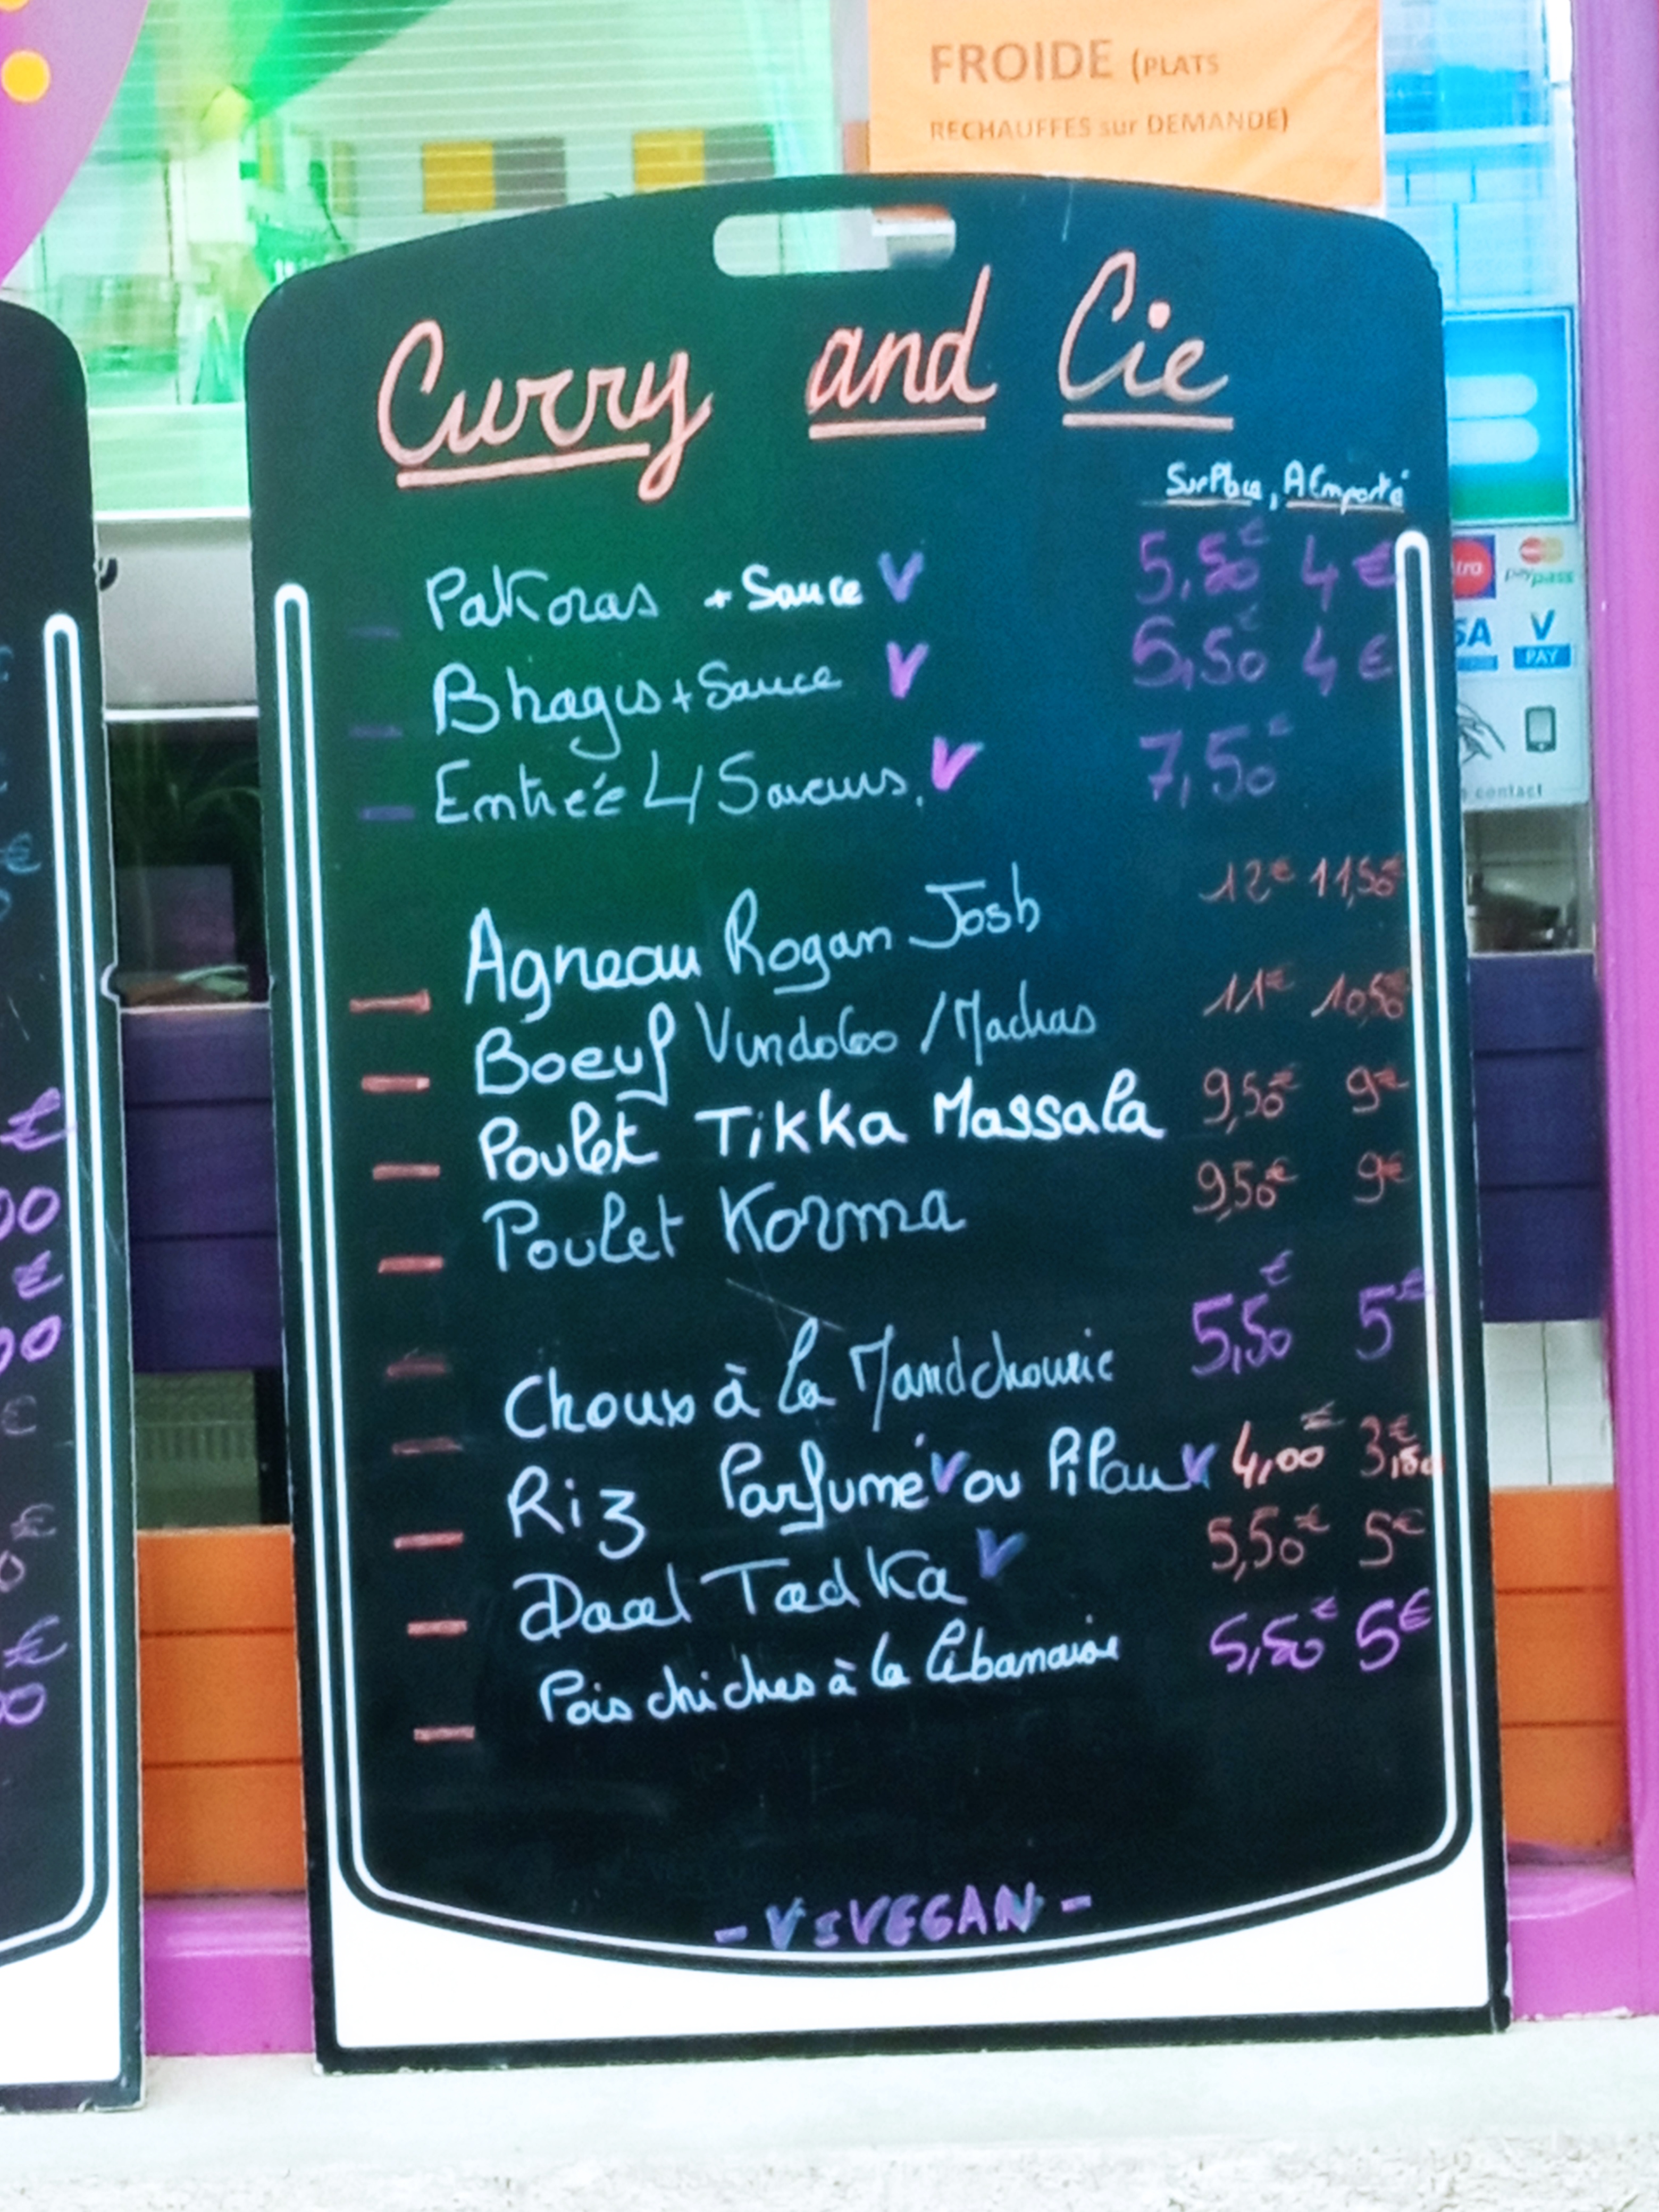 FROIDE (PLATS
RECHAUFFES sur DEMANDE)
Curry and Cie
Sur Place, A Emporté
Pakoras + Sauce V 5,50€ 4€
Bhagis + Sauce V 5,50€ 4€
Entrée 4 Saveurs. V 7,50€
Agneau Rogan Josh 12€ 11,50€
Boeuf Vindaloo / Madras 11€ 10,50€
Poulet Tikka Massala 9,50€ 9€
Poulet Korma 9,50€ 9€
Choux à la Mandchourie 5,50€ 5€
Riz Parfumé V ou Pilau V 4,00€ 3€,50
Daal Tadka V 5,50€ 5€
Pois chiches à la libanaise 5,50€ 5€
- V = VEGAN -
paypass
V
PAY
contact